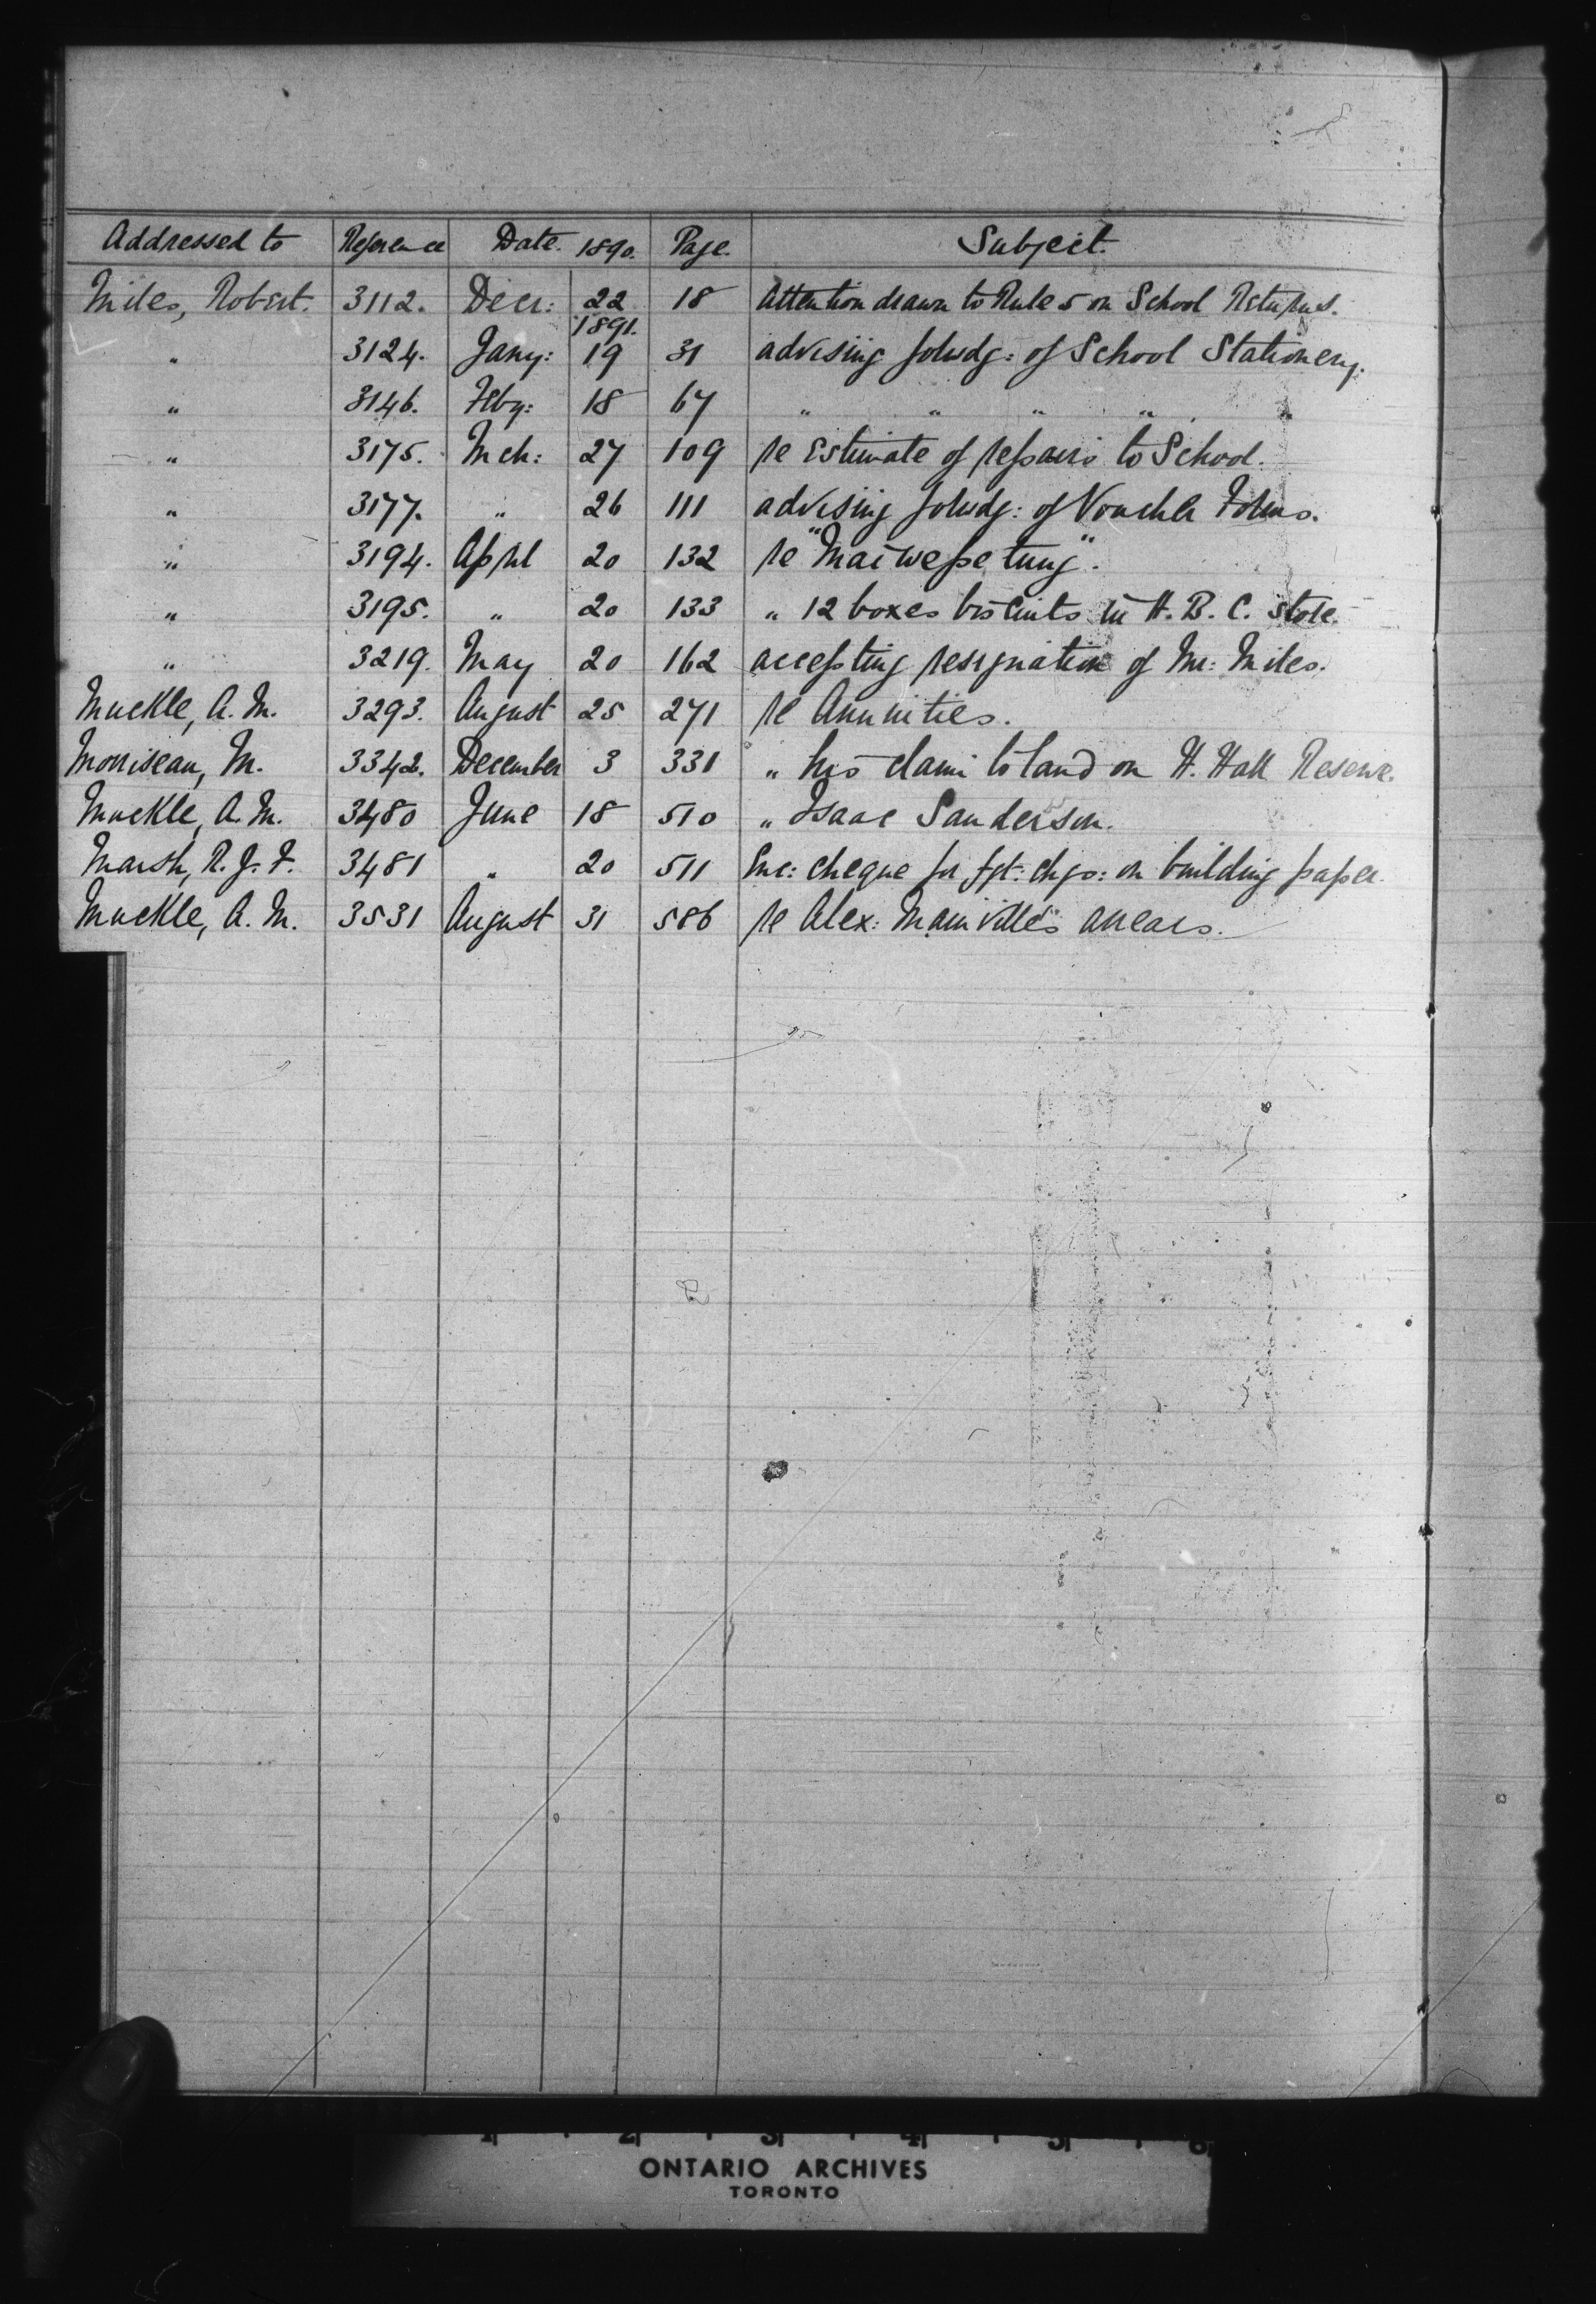 Addressed to Reference Date 1890. Page. Subject.
Miles, Robert. 3112. Decr: 22 18 Attention drawn to Rule 5 on School Returns.
1891.
" 3124. Jany: 19 31 advising forwdg: of School Stationery.
" 3146. Feby: 18 67 " " " " "
" 3175. Mch: 27 109 re Estimate of repairs to School.
" 3177. " 26 111 advising forwdg: of Voucher Forms.
" 3194. April 20 132 re "Maiwepetung".
" 3195. " 20 133 " 12 boxes biscuits in H. B. C. store.
" 3219. May 20 162 accepting resignation of Mr: Miles.
Muckle, A. M. 3293. August 25 271 re Annuities.
Morriseau, M. 3342. December 3 331 " his claim to land on H. Hall Reserve.
Muckle, A. M. 3480 June 18 510 " Isaac Sanderson.
Marsh, R. J. F. 3481 " 20 511 Enc: cheque for fgt: chgs: on building paper.
Muckle, A. M. 3531 August 31 586 re Alex: Mainville's arrears.
1 2 3 4 5 6
ONTARIO ARCHIVES
TORONTO